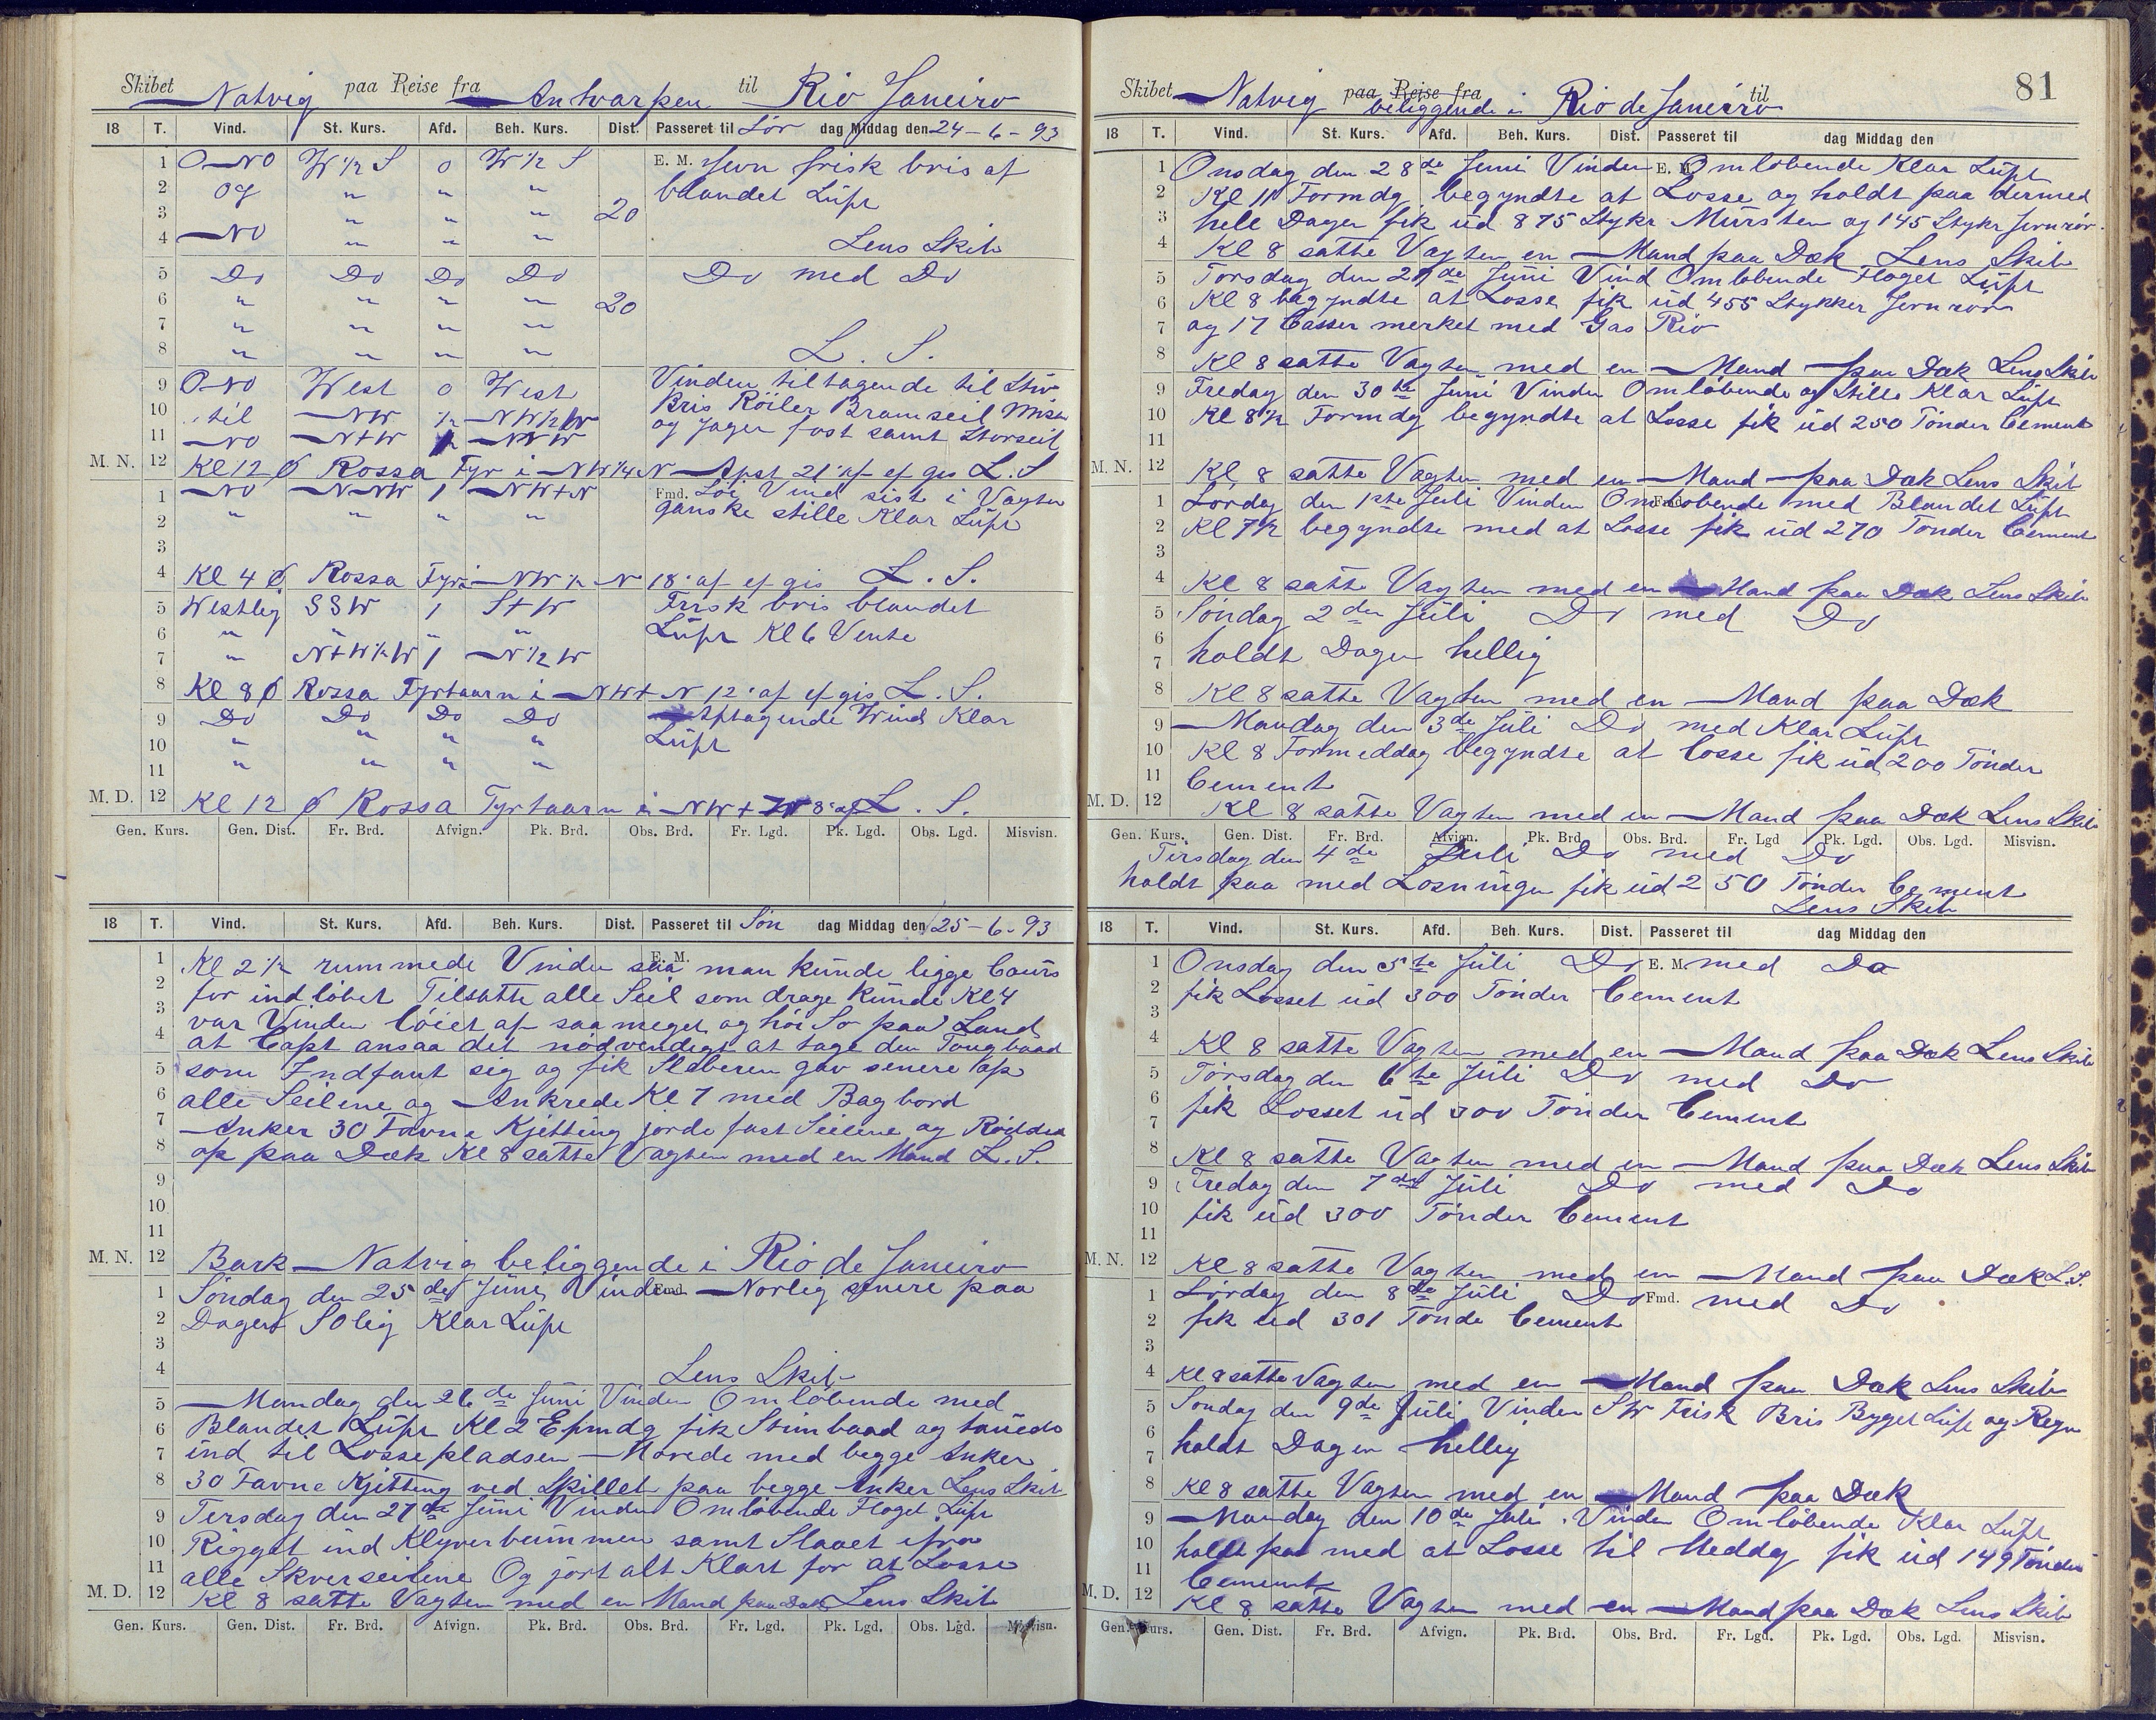 Skibet Natvig paa Reise fra Antvarpen til Rio Janeiro
18 T. Vind. St. Kurs. Afd. Beh. Kurs. Dist. Passeret til Lör dag Middag den 24-6-93
1 O-NO W ½ S 0 W ½ S E. M. Jevn frisk bris af
2 og " " " blandet Lüft
3 " " " 20
4 NO " " " Lens Skib
5 Do Do Do Do Do med Do
6 " " " " 20
7 " " " "
8 " " " " L. S.
9 O-NO West 0 West Vinden tiltagende til Stiv
10 til NW ½ NW½W Bris Röiler Bramseil Misan
11 NO N+W NNW og Jager fast samt Storseil
M. N. 12 Kl 12 Ø Rossa Fyr i NW¼N Afst 21' af ef gis L. S
1 NO N-NW 1 NW+N Fmd. Löi Vind sist i Vagten
2 " " " " ganske stille Klar Lüft
3
4 Kl 4 Ø Rossa Fyr i NW½N 18' af ef gis L. S.
5 Westlig SSW 1 S+W Frisk bris blandet
6 " " " " Lüft Kl 6 Vente
7 " N+W½W 1 N½W
8 Kl 8 Ø Rossa Fyrtaarn i NW+N 12' af ef gis L. S.
9 Do Do Do Do Aftagende Wind Klar
10 " " " " Lüft
11 " " " "
M. D. 12 Kl 12 Ø Rossa Fyrtaarn i NW+W 8' af L. S.
Gen. Kurs. Gen. Dist. Fr. Brd. Afvign. Pk. Brd. Obs. Brd. Fr. Lgd. Pk. Lgd. Obs. Lgd. Misvisn.
18 T. Vind. St. Kurs. Afd. Beh. Kurs. Dist. Passeret til Sön dag Middag den 25-6-93
E. M.
1 Kl 2½ rummede Vinden saa man künde ligge Cours
2 for indlöbet Tilsatte alle Seil som drage künde Kl 4
3 var Vinden löiet af saa meget og höi Sö paa Land
4 at Capt ansaa det nödvendigt at tage den Toügbaad
5 som Indfant sig og fik Sleberen gav senere op
6 alle Seilene og Ankrede Kl 7 med Bagbord
7 Anker 30 Favne Kjitting jorde fast Seilene og Röidda
8 op paa Dæk Kl 8 satte Vagten med en Mand L. S.
9
10
11
M. N. 12 Bark Natvig beliggende i Rio de Janeiro
1 Söndag den 25de Jüni Vinden Fmd. Norlig senere paa
2 Dagen SOlig Klar Lüft
3
4 Lens Skib
5 Mandag den 26de Jüni Vinden Omlöbende med
6 Blandet Lüft Kl 2 Efmdg fik Stimbaad og taüedes
7 ind til Lossepladsen Morede med begge Anker
8 30 Favne Kjitting ved Skillet paa begge Anker Lens Skib
9 Tersdag den 27de Jüni Vinden Omlöbende Floget Lüft
10 Rigget ind Klyverbümmen samt Slaaet ifra
11 alle Skverseilene Og jort alt Klart for at Losse
M. D. 12 Kl 8 satte Vagten med en Mand paa Dæk Lens Skib
Gen. Kurs. Gen. Dist. Fr. Brd. Afvign. Pk. Brd. Obs. Brd. Fr. Lgd. Pk. Lgd. Obs. Lgd. Misvisn.
81
Skibet Natvig paa Reise fra beliggende i Rio de Janeirro til
18 T. Vind. St. Kurs. Afd. Beh. Kurs. Dist. Passeret til dag Middag den
1 Onsdag den 28de Jüni Vinden E. M. Omlöbende Klar Lüft
2 Kl 11 Formdg begyndte at Losse og holdt paa dermed
3 hele Dagen fik üd 875 Stykr Mürsten og 145 Stykr Jernrör.
4 Kl 8 satte Vagten en Mand paa Dæk Lens Skib
5 Torsdag den 29de Jüni Vind Omlöbende Floget Lüft
6 Kl 8 begyndte at Losse fik üd 455 Stykker Jernrör
7 og 17 Casser merket med Gas Rio
8 Kl 8 satte Vagten med en Mand paa Dæk Lens Skib
9 Fredag den 30te Jüni Vinden Omlöbende og Stille Klar Lüft
10 Kl 8½ Formdg begyndte at Losse fik üd 250 Tönder Cement
11
M. N. 12 Kl 8 satte Vagten med en Mand paa Dæk Lens Skib
1 Lördag den 1ste Jüli Vinden Omlöbende Fmd. med Blandet Lüft
2 Kl 7½ begyndte med at Losse fik üd 270 Tönder Cement
3
4 Kl 8 satte Vagten med en Mand paa Dæk Lens Skib
5 Söndag 2den Jüli Do med Do
6
7 holdt Dagen hellig
8 Kl 8 satte Vagten med en Mand paa Dæk
9 Mandag den 3de Jüli Do med Klar Lüft
10 Kl 8 Formeddag begyndte at Losse fik üd 200 Tönder
11 Cement
M. D. 12 Kl 8 satte Vagten med en Mand paa Dæk Lens Skib
Gen. Kurs. Gen. Dist. Fr. Brd. Afvign. Pk. Brd. Obs. Brd. Fr. Lgd Pk. Lgd. Obs. Lgd. Misvisn.
Tirsdag den 4de Juli Do med Do
holdt paa med Losningen fik üd 250 Tönder Cement
Lens Skib
18 T. Vind. St. Kurs. Afd. Beh. Kurs. Dist. Passeret til dag Middag den
1 Onsdag den 5te Jüli Do E. M. med Do
2 fik Losset üd 300 Tönder Cement
3
4 Kl 8 satte Vagten med en Mand paa Dæk Lens Skib
5 Torsdag den 6te Jüli Do med Do
6 fik Losset üd 300 Tönder Cement
7
8 Kl 8 satte Vagten med en Mand paa Dæk Lens Skib
9 Fredag den 7de Jüli Do med Do
10 fik üd 300 Tönder Cement
11
M. N. 12 Kl 8 satte Vagten med en Mand paa Dæk L. S.
1 Lördag den 8de Jüli Do Fmd. med Do
2 fik üd 301 Tönde Cement
3
4 Kl 8 satte Vagten med en Mand paa Dæk Lens Skib
5 Söndag den 9de Jüli Vinden SW Frisk Bris Byget Lüft og Regn
6
7 holdt Dagen hellig
8 Kl 8 satte Vagten med en Mand paa Dæk
9 Mandag den 10de Jüli Vinden Omlöbende Klar Lüft
10 holdt paa med at Losse til Meddag fik üd 149 Tönder
11 Cement
M. D. 12 Kl 8 satte Vagten med en Mand paa Dæk Lens Skib
Gen. Kurs. Gen. Dist. Fr. Brd. Afvign. Pk. Brd. Obs. Brd. Fr. Lgd. Pk. Lgd. Obs. Lgd. Misvisn.